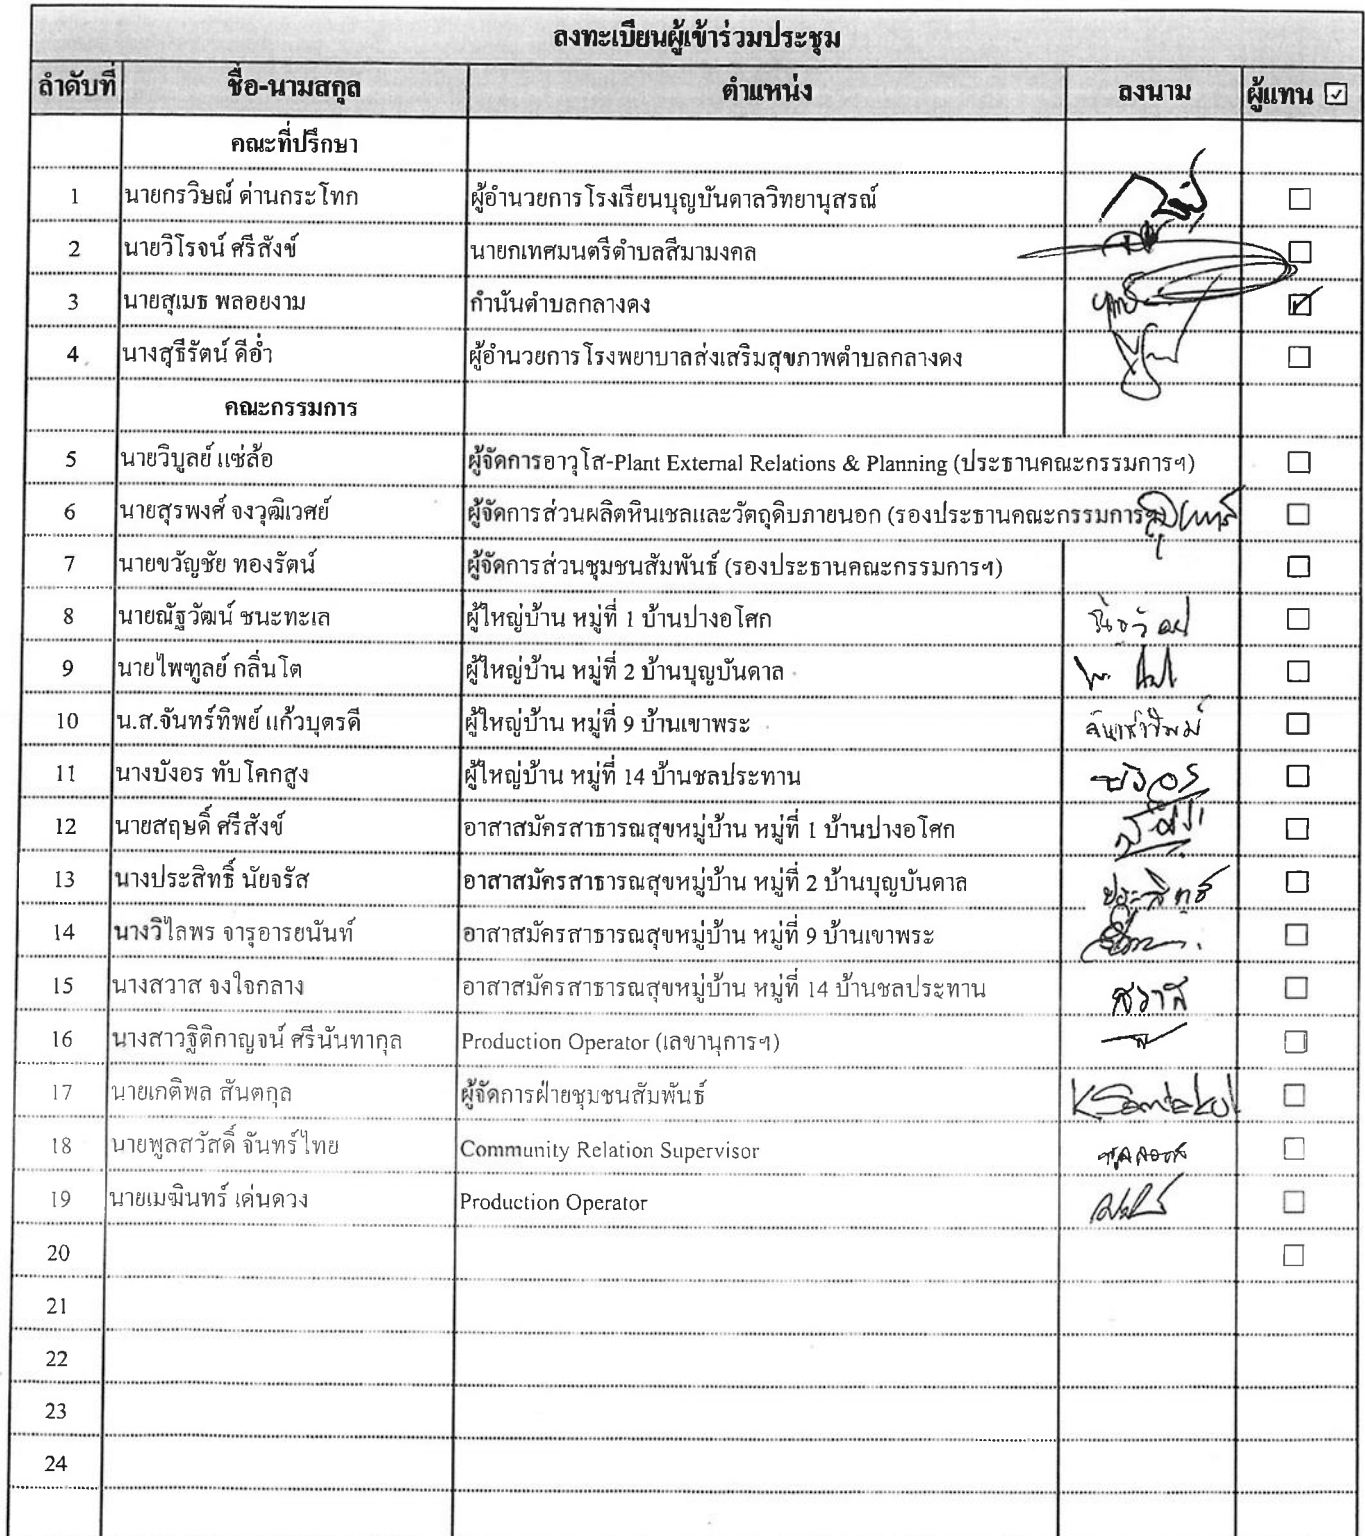 ลงทะเบียนผู้เข้าร่วมประชุม
ลำดับที่ ชื่อ-นามสกุล ตำแหน่ง ลงนาม ผู้แทน ☑
คณะที่ปรึกษา
1 นายกรวิษณ์ ด่านกระโทก ผู้อำนวยการโรงเรียนบุญบันดาลวิทยานุสรณ์ ☐
2 นายวิโรจน์ ศรีสังข์ นายกเทศมนตรีตำบลสีมามงคล ☐
3 นายสุเมธ พลอยงาม กำนันตำบลกลางดง ☑
4 นางสุธีรัตน์ ดีอ่ำ ผู้อำนวยการโรงพยาบาลส่งเสริมสุขภาพตำบลกลางดง ☐
คณะกรรมการ
5 นายวิบูลย์ แซ่ล้อ ผู้จัดการอาวุโส-Plant External Relations & Planning (ประธานคณะกรรมการฯ) ☐
6 นายสุรพงศ์ จงวุฒิเวศย์ ผู้จัดการส่วนผลิตหินเชลและวัตถุดิบภายนอก (รองประธานคณะกรรมการฯ) ☐
7 นายขวัญชัย ทองรัตน์ ผู้จัดการส่วนชุมชนสัมพันธ์ (รองประธานคณะกรรมการฯ) ☐
8 นายณัฐวัฒน์ ชนะทะเล ผู้ใหญ่บ้าน หมู่ที่ 1 บ้านปางอโศก ☐
9 นายไพฑูลย์ กลิ่นโต ผู้ใหญ่บ้าน หมู่ที่ 2 บ้านบุญบันดาล ☐
10 น.ส.จันทร์ทิพย์ แก้วบุตรดี ผู้ใหญ่บ้าน หมู่ที่ 9 บ้านเขาพระ ☐
11 นางบังอร ทับโคกสูง ผู้ใหญ่บ้าน หมู่ที่ 14 บ้านชลประทาน บังอร ☐
12 นายสฤษดิ์ ศรีสังข์ อาสาสมัครสาธารณสุขหมู่บ้าน หมู่ที่ 1 บ้านปางอโศก ☐
13 นางประสิทธิ์ นัยจรัส อาสาสมัครสาธารณสุขหมู่บ้าน หมู่ที่ 2 บ้านบุญบันดาล ประสิทธิ์ ☐
14 นางวิไลพร จารุอารยนันท์ อาสาสมัครสาธารณสุขหมู่บ้าน หมู่ที่ 9 บ้านเขาพระ ☐
15 นางสวาส จงใจกลาง อาสาสมัครสาธารณสุขหมู่บ้าน หมู่ที่ 14 บ้านชลประทาน สวาส ☐
16 นางสาวฐิติกาญจน์ ศรีนันทากุล Production Operator (เลขานุการฯ) ☐
17 นายเกติพล สันตกุล ผู้จัดการฝ่ายชุมชนสัมพันธ์ K Santakul ☐
18 นายพูลสวัสดิ์ จันทร์ไทย Community Relation Supervisor ☐
19 นายเมฆินทร์ เด่นดวง Production Operator ☐
20 ☐
21
22
23
24